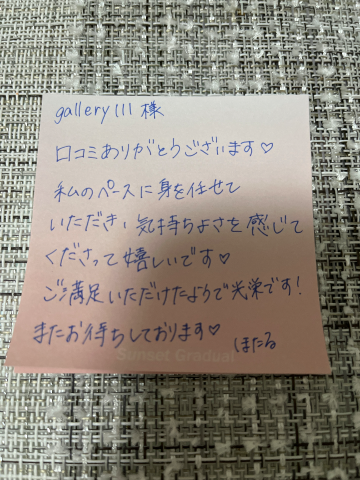 gallery111 様
口コミありがとうございます♡
私のペースに身を任せて
いただき、気持ちよさを感じて
くださって嬉しいです♡
ご満足いただけたようで光栄です!
またお待ちしております♡
Sunset Gradual
ほたる